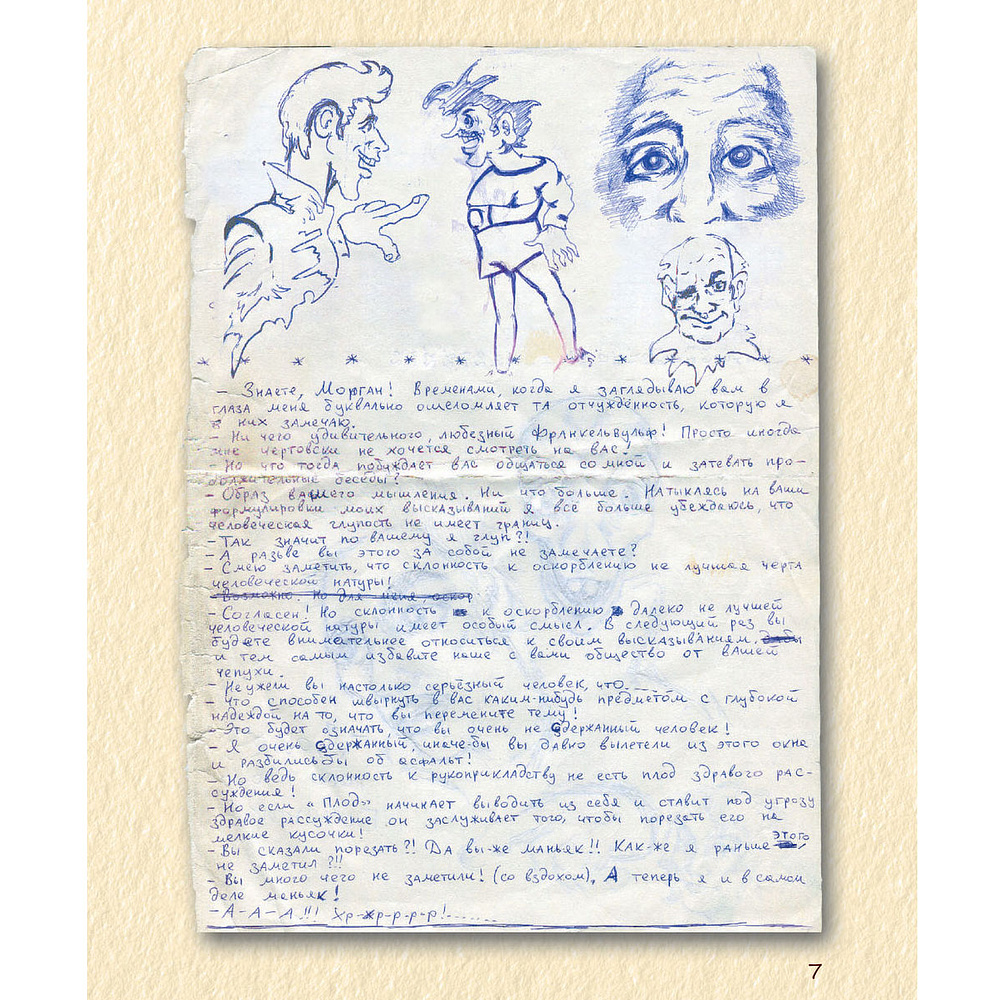 * * * * * * * * * * * *
– Знаете, Морган! Временами, когда я заглядываю вам в
глаза меня буквально ошеломляет та отчуждённость, которую я
в них замечаю.
– Ни чего удивительного, любезный Франкельвульф! Просто иногда
мне чертовски не хочется смотреть на вас.
– Но что тогда побуждает вас общаться со мной и затевать про-
должительные беседы?
– Образ вашего мышления. Ни что больше. Натыкаясь на ваши
формулировки моих высказываний я всё больше убеждаюсь, что
человеческая глупость не имеет границ.
– Так значит по вашему я глуп?!
– А разьве вы этого за собой не замечаете?
– Смею заметить, что склонность к оскорблению не лучшая черта
человеческой натуры!
Возможно. Но для меня, оскор
– Согласен! Но склонность к оскорблению далеко не лучшей
человеческой натуры имеет особый смысл. В следующий раз вы
будете внимательнее относиться к своим высказываниям,
и тем самым избавите наше с вами общество от вашей
чепухи.
– Неужели вы настолько серьёзный человек, что
– Что способен швырнуть в вас каким-нибудь предметом с глубокой
надеждой на то, что вы перемените тему!
– Это будет означать, что вы очень не сдержанный человек!
– Я очень сдержанный, иначе-бы вы давно вылетели из этого окна
и разбились бы об асфальт!
– Но ведь склонность к рукоприкладству не есть плод здравого рас-
суждения!
– Но если «Плод» начинает выводить из себя и ставит под угрозу
здравое рассуждение он заслуживает того, чтобы порезать его на
мелкие кусочки!
– Вы сказали порезать?! Да вы-же маньяк!! Как-же я раньше этого
не заметил?!!
– Вы много чего не заметили! (со вздохом), А теперь я и в самом
деле маньяк!
– А-А-А!!! Хр-хр-р-р-р!.......
7